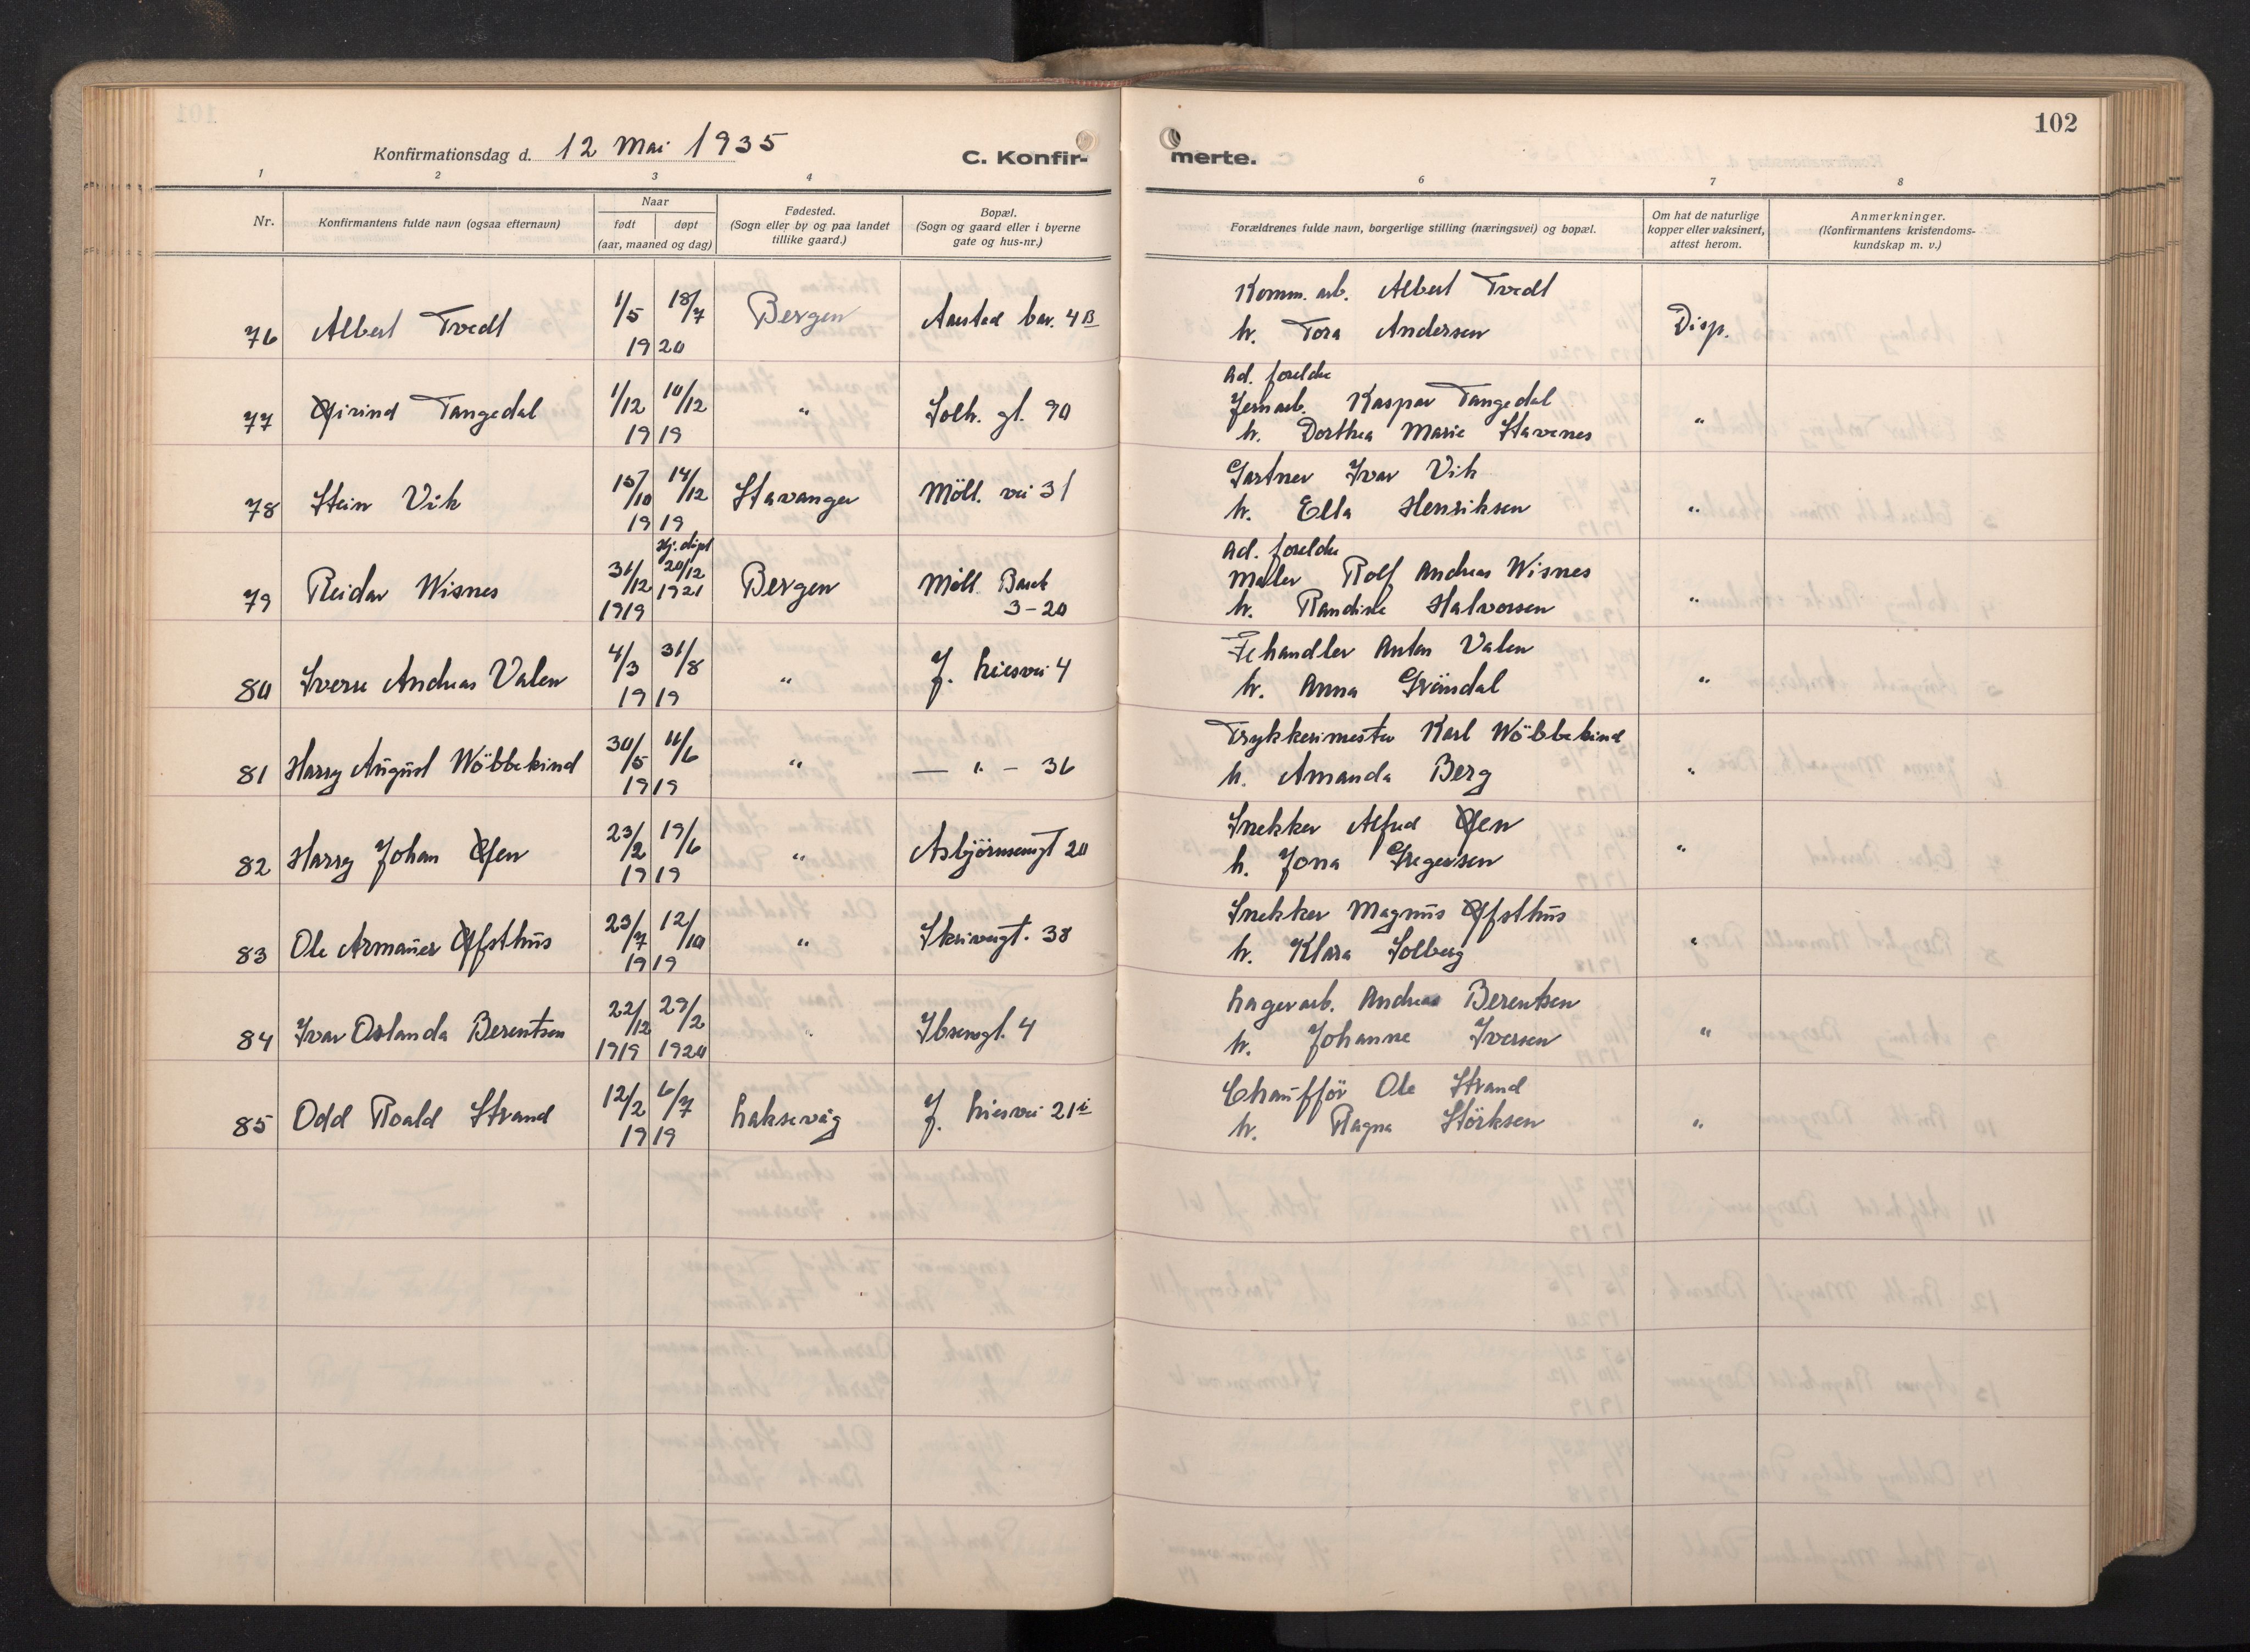 102
Konfirmationsdag d. 12 Mai 1935
C. Konfir-
merte.
1 2 3 4 6 7 8
Nr.
Konfirmantens fulde navn (ogsaa efternavn)
Naar
født døpt
(aar, maaned og dag)
Fødested.
(Sogn eller by og paa landet
tillike gaard.)
Bopæl.
(Sogn og gaard eller i byerne
gate og hus-nr.)
Forældrenes fulde navn, borgerlige stilling (næringsvei) og bopæl.
Om hat de naturlige
kopper eller vaksinert,
attest herom.
Anmerkninger.
(Konfirmantens kristendoms-
kundskap m. v.)
Komm. arb. Albert Tvedt
76 Albert Tvedt 1/5 18/7 Bergen Aarstad bar. 4B h. Tora Andersen Disp.
19 20
Ad. foreldre
77 Øivind Tangedal 1/12 10/12 " Solh. gt. 90 Jernarb. Kaspar Tangedal "
19 19 h. Dorthea Marie Stavenes
Gartner Ivar Vik
78 Stein Vik 15/10 14/12 Stavanger Möll. vei 31 h. Ella Henriksen "
19 19
Hj. døpt Ad. foreldre
79 Reidar Wisnes 31/12 20/12 Bergen Möll. Bark Maler Rolf Andreas Wisnes "
1919 1921 3-20 h. Randine Halvorsen
Fehandler Anton Valen
80 Sverre Andreas Valen 4/3 31/8 " J. Liesvei 4 h. Anna Gröndal "
19 19
Trykkerimester Karl Wöbbekind
81 Harry August Wöbbekind 30/5 11/6 " — " — 36 h. Amanda Berg "
19 19
Snekker Alfred Øfen
82 Harry Johan Øfen 23/2 19/6 " Asbjörnsensgt 20 h. Jona Gregersen "
19 19
Snekker Magnus Øfsthus
83 Ole Armauer Øfsthus 23/7 12/10 " Skriversgt. 38 h. Klara Solberg "
19 19
Lagerarb. Andreas Berentsen
84 Ivar Orlanda Berentsen 22/12 29/2 " Ibsensgt. 4 h. Johanne Iversen "
1919 1920
Chaufför Ole Strand
85 Odd Roald Strand 12/2 6/7 Laksevåg J. Liesvei 21i h. Ragna Störksen "
19 19